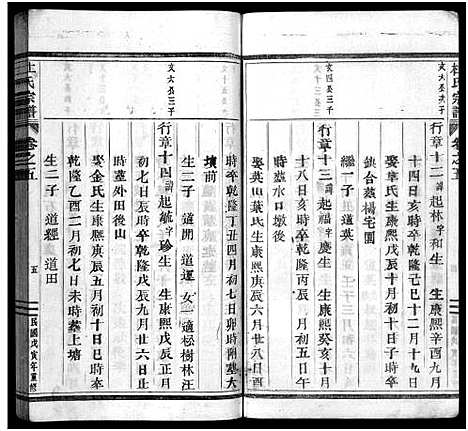 杜氏宗譜
卷之五
文四公三子
行章十二諱起林字和生 生康熙辛酉九月
十四日戌時卒乾隆己巳十二月十九日
娶華氏生康熙癸亥十月初十日子時卒
缺合葬楊宅園
繼一子 道英
行章十三諱起福字慶生 生康熙癸亥十月
十八日亥時卒乾隆丙辰 月初五日午
時葬水口墩後
娶英山葉氏生康熙 亥六月廿八日
文大公三子
時卒乾隆丁丑四月初七日卯時附葬大
墳前
生二子 道開 道運 女一適松樹林汪
文大公四子
行章十四諱起毓字珍生 生康熙戊辰正月
初七日辰時卒乾隆戊辰九月廿六日此
時葬外田後山
娶金氏生康熙庚辰五月初十日巳時卒
乾隆乙酉二月初七日未時葬上塘
生二子 道經 道田
杜氏宗譜
卷之五
五
民國戊寅年重修